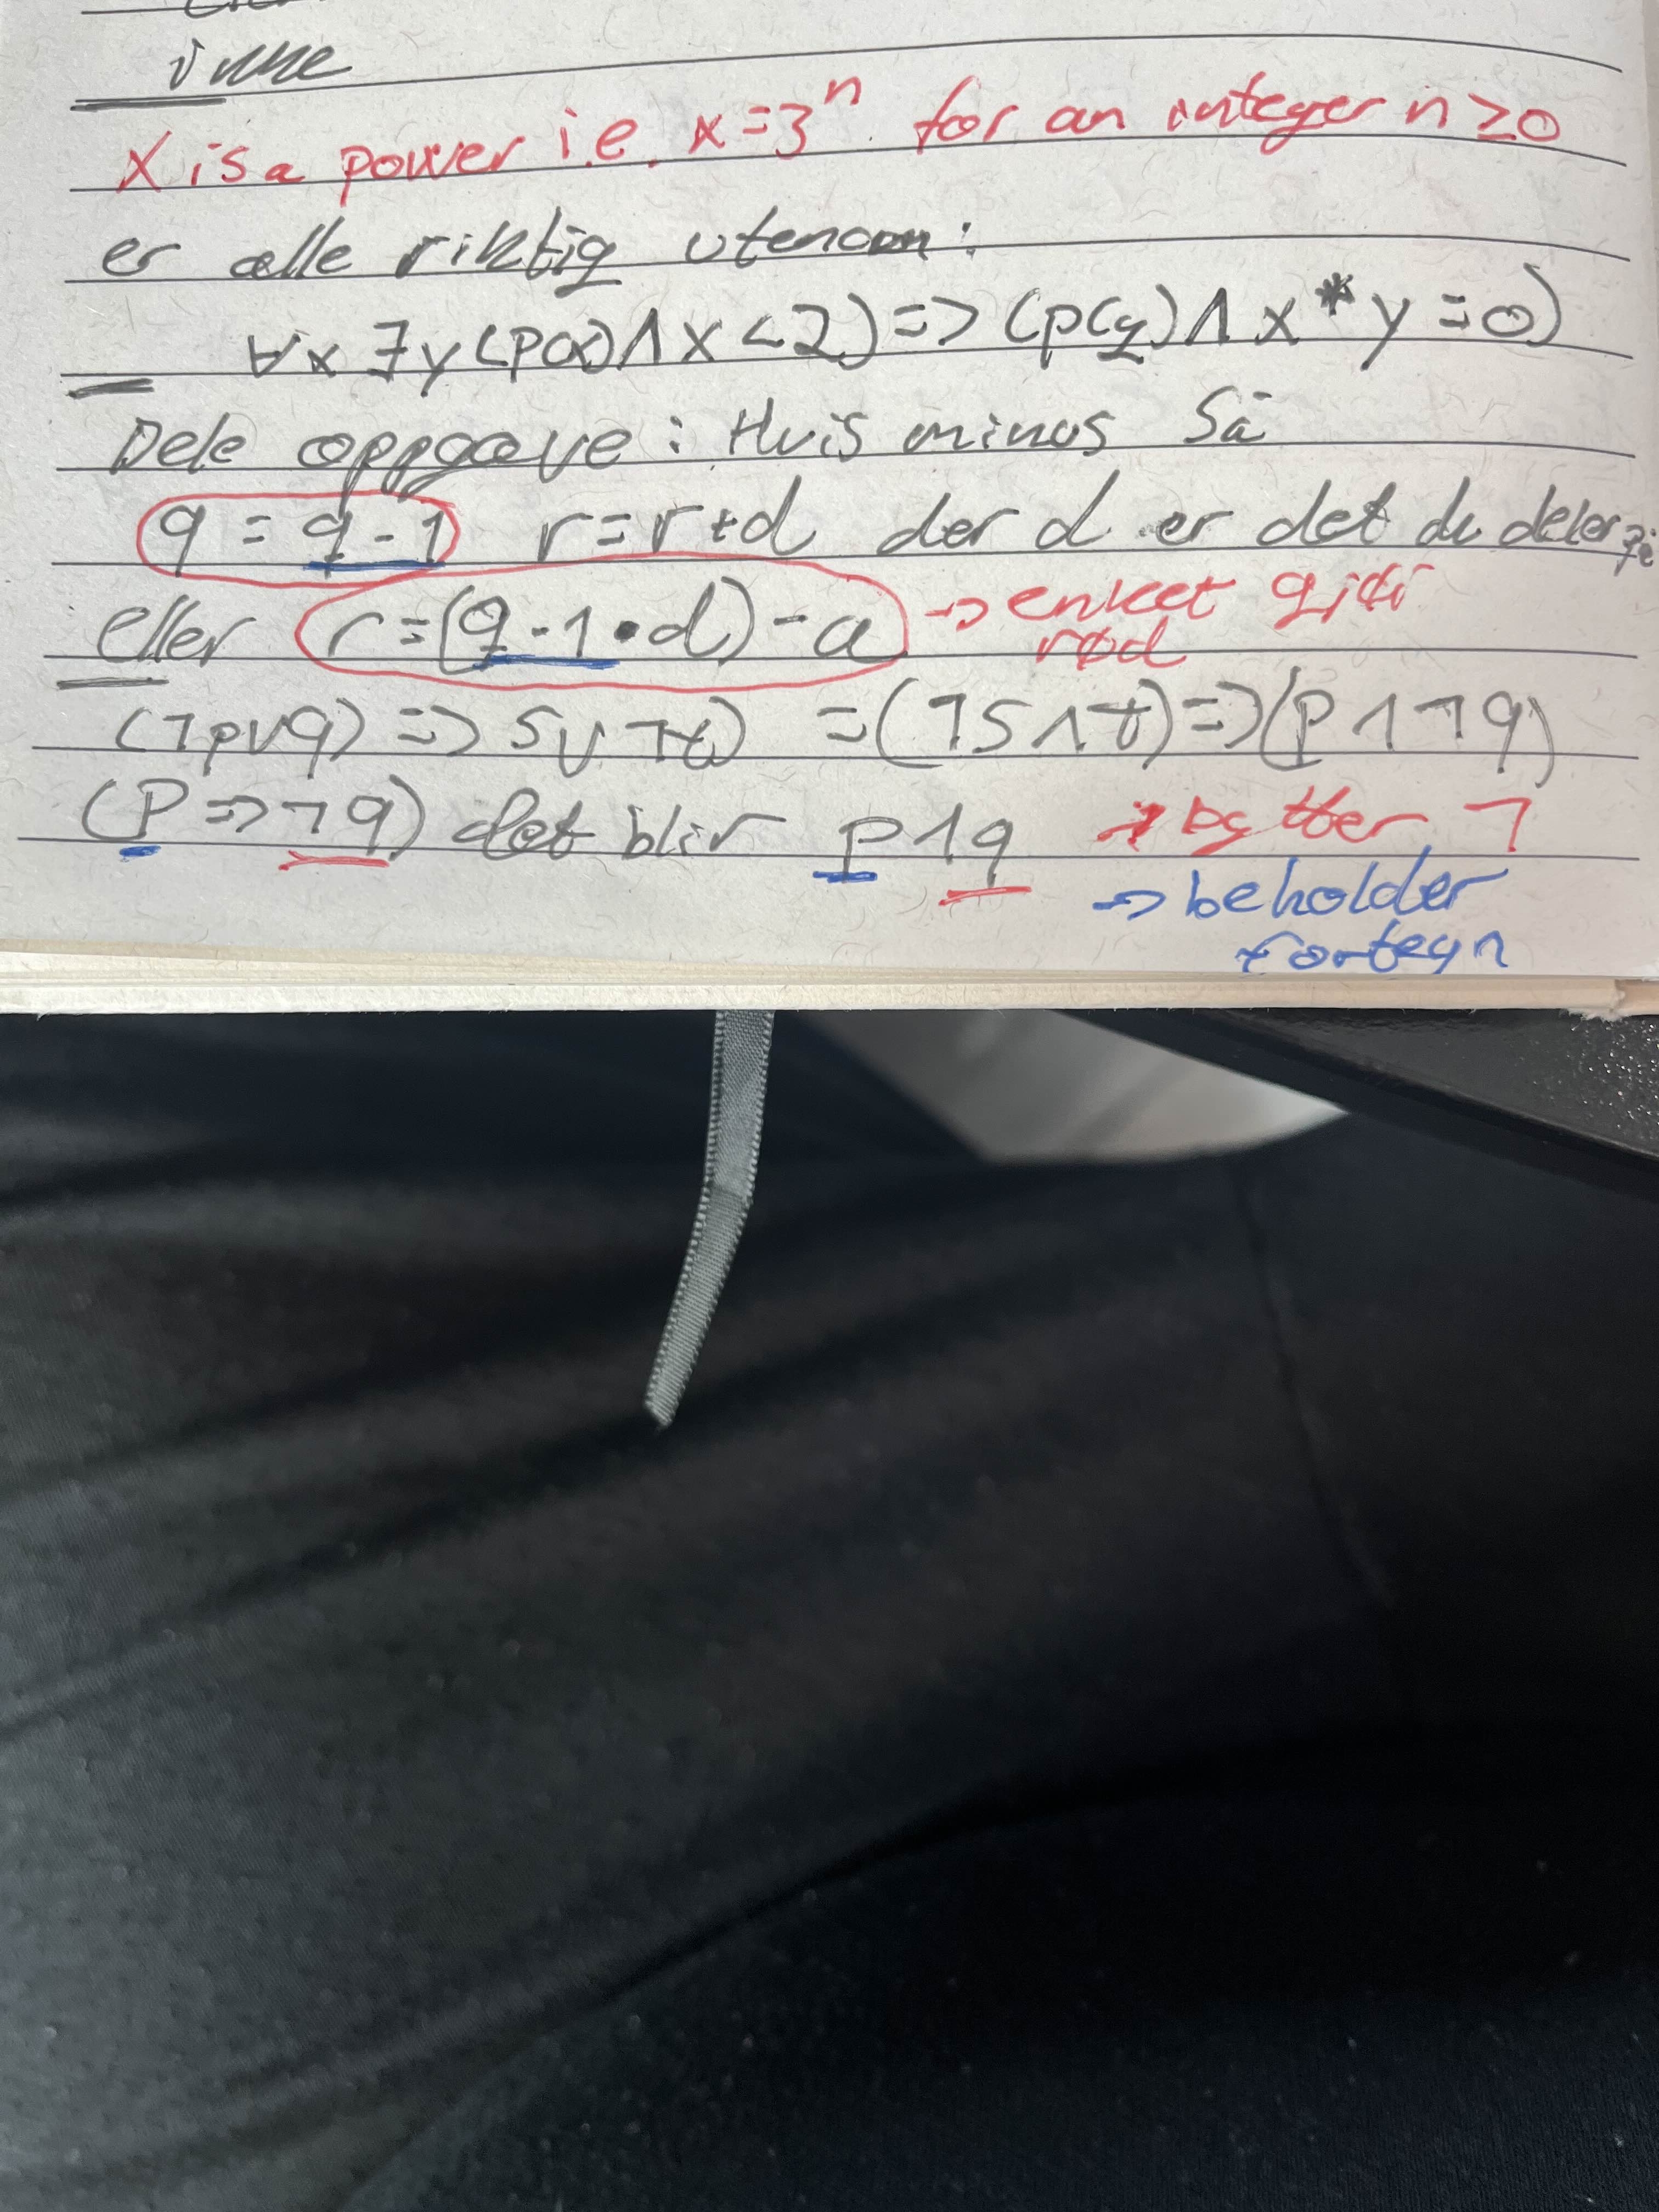 X is a power i.e. x=3ⁿ for an integer n≥0
er alle riktig utenom:
∀x ∃y (P(x)∧x<2)=>(p(y)∧x*y=0)
Dele oppgave: Hvis minus Så
q = q-1 r=r+d der d er det du deler på
eller r=(q-1•d)-a → enkel gitt rød
(¬p∨q) => s∨¬t) =(¬s∧t)=>(p∧¬q)
(P=>¬q) det blir p∧q → bytter ¬
→ beholder
fortegn